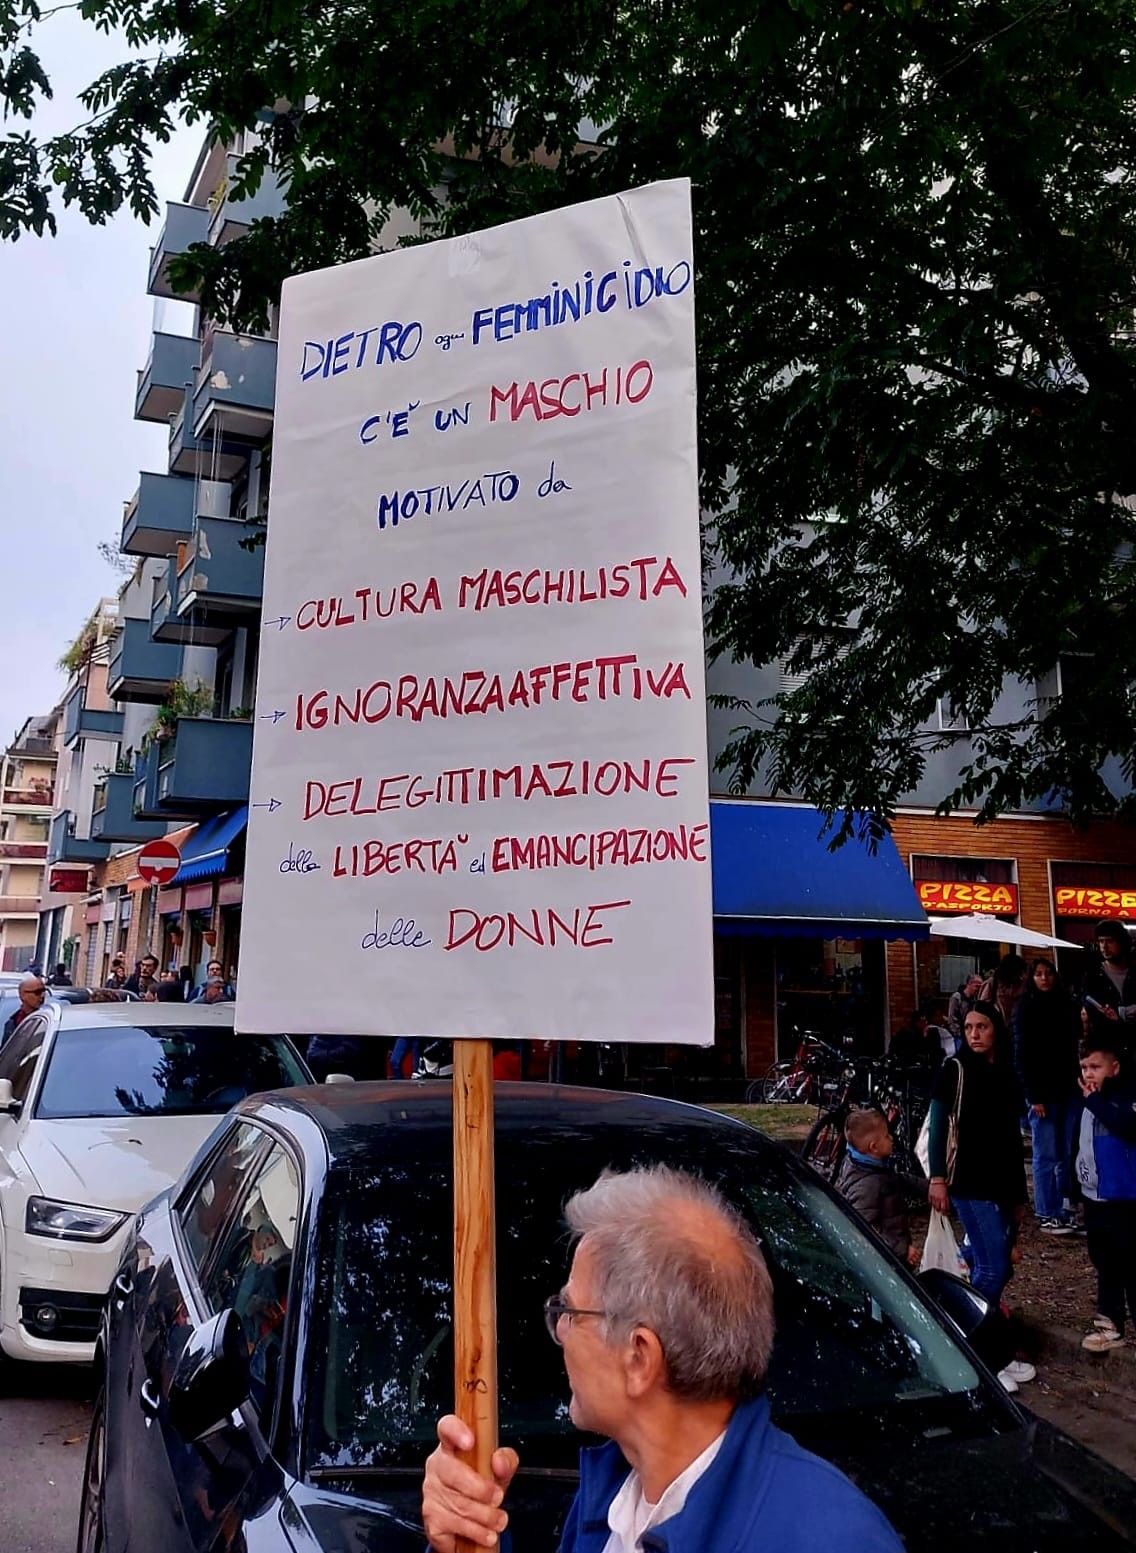 DIETRO ogni FEMMINICIDIO
C'È UN MASCHIO
MOTIVATO da
→ CULTURA MASCHILISTA
→ IGNORANZA AFFETTIVA
→ DELEGITTIMAZIONE
della LIBERTÀ ed EMANCIPAZIONE
delle DONNE
PIZZA
D'ASPORTO
PIZZE
FORNO A